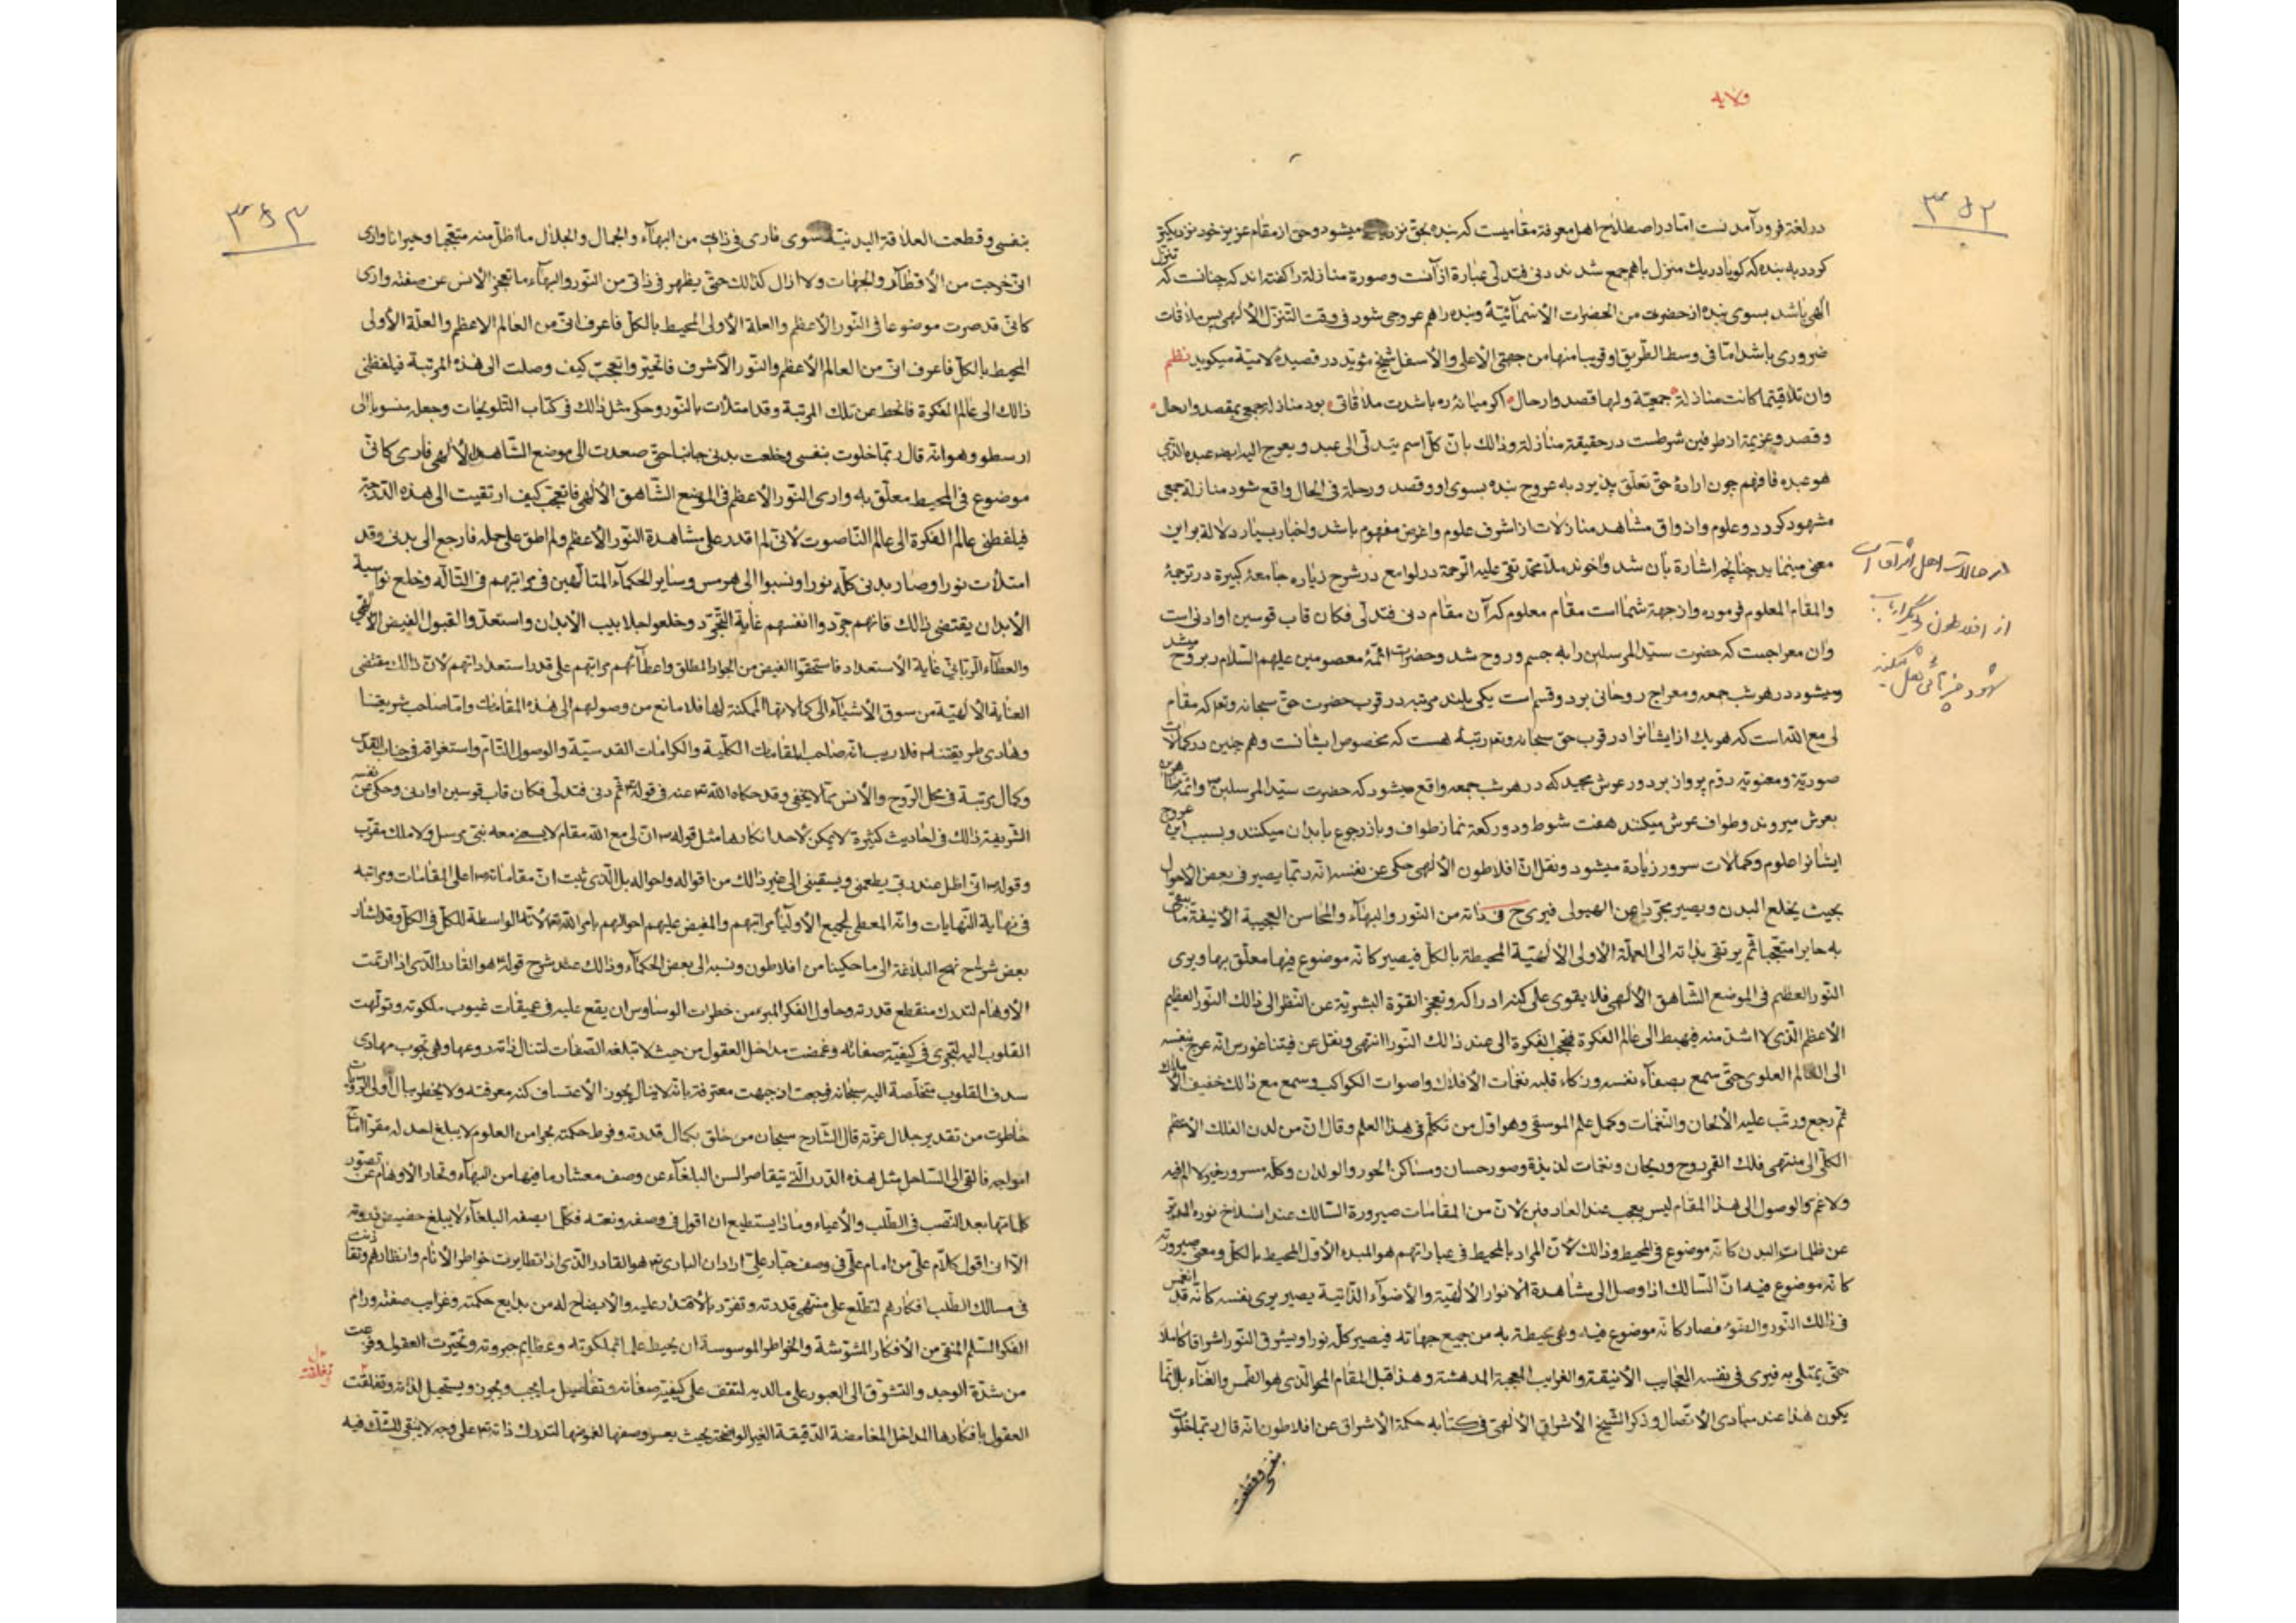 ولایه
۳۵۲
در لغة فرود آمدنست امّا در اصطلاح اهل معرفة مقامیست که بنده بحق نزدیک میشود و حق از مقام عزیز خود نزدیکتر
کردد به بنده که کویا در یك منزل باهم جمع شدند دنی فتدلّی عبارة از آنست و صورة منازلة را کفته‌اند که چنانست که تنزل
الهی باشد بسوی بنده از حضرت من الحضرات الأسمآئیّة و بنده را هم عروجی شود در وقت التنزّل الألهی پس ملاقات
ضروری باشد امّا فی وسط الطریق او قریبا منها من جهتی الأعلی والأسفل شیخ مؤیّد در قصیدهٔ لامیّة میکوید نظم
وان تلاقیتما کانت منازلة جمعیّة ولها قصد وارحال اکر میانهٔ ره باشدت ملاقاتی بود منازلهٔ جمعی بمقصد وارحال
و قصد و عزیمة از طرفین شرطست در حقیقة منازلة وذالك بانّ کلّ اسم یتدلّی الی عبد و یعرج الیه ایضا عبده الّذی
هو عبده فافهم چون ارادهٔ حق تعلّق پذیرد به عروج بنده بسوی او و قصد و رحلة فی الحال واقع شود منازلهٔ جمعی
مشهود کردد و علوم و اذواق مشاهد منازلات از اشرف علوم واغرض مفهوم باشد واخبار بسیار دلالة بر این
معنی مینماید چنانچه اشارة بآن شد وآخوند ملّا محمّد تقی علیه الرّحمة در لوامع در شرح زیاره جامعهٔ کبیرة در ترجمهٔ
والمقام المعلوم فرموده واز جهة شما است مقام معلوم که آن مقام دنی فتدلّی فکان قاب قوسین او ادنی است
وآن معراجست که حضرت سیّد المرسلین را به جسم و روح شد و حضرات ائمّهٔ معصومین علیهم السّلام را بروح میشد
ومیشود در هر شب جمعه و معراج روحانی بر دو قسم است یکی بلند مرتبه در قرب حضرت حقّ سبحانه وتعالی که مقام
لی مع الله است که هر یك از ایشانرا در قرب حق سبحانه وتعالی رتبهٔ هست که مخصوص ایشانست و هم چنین در کمالات
صوریّة و معنویّة دوّم پرواز بر دور عرش مجید که در هر شب جمعه واقع میشود که حضرت سیّد المرسلین و ائمّه
بعرش میروند و طواف عرش میکنند هفت شوط و دو رکعة نماز طواف و باز رجوع بابدان میکنند و بسبب این عروج
ایشانرا علوم و کمالات سرور زیادة میشود ونقل انّ افلاطون الألهی حکی عن نفسه انّه ربّما یصیر فی بعض الأحوال
بحیث یخلع البدن ویصیر مجرّدا عن الهیولی فیری ح فی ذاته من النّور والبهآء والمحاسن العجیبة الأنیقة ما یبقی
به حایرا متعجّبا ثمّ یرتقی بذاته الی العلّة الأولی الألهیّة المحیطة بالکلّ فیصیر کانّه موضوع فیها معلّق بها ویری
النّور العظیم فی الموضع الشّاهق الألهی فلا یقوی علی کنه ادراکه وتعجز القوّة البشریّة عن النّظر الی ذالك النّور العظیم
الأعظم الّذی لا اشدّ منه فیهبط الی عالم الفکرة فتحجب الفکرة الی عند ذالك النّور انتهی ونقل عن فیثاغورس انّه عرج بنفسه
الی العالم العلوی حتّی سمع بصفآء نفسه وزکاء قلبه نغمات الأفلاك واصوات الکواکب وسمع مع ذالك خفیف الأملاك
ثمّ رجع ورتّب علیه الألحان والنّغمات وکمل علم الموسیقی وهو اوّل من تکلّم فی هذا العلم وقال انّ من لدن الفلك الأعظم
الکلّی الی منتهی فلك القمر روح وریحان ونغمات لذیذة وصور حسان ومساکن الحور والولدان وکلّه سرور خیر لا الم فیه
ولا غم والوصول الی هذا المقام لیس بعجب عند العارفین لانّ من المقامات صیرورة السّالك عند انسلاخ نوره المدبّر
عن ظلمات البدن کانّه موضوع فی المحیط وذالك لانّ المراد بالمحیط فی عباراتهم هو المبدء الأوّل المحیط بالکلّ ومعنی صیرورته
کانّه موضوع فیه انّ السّالك اذا وصل الی مشاهدة الأنوار الألهیّة والأضوآء الذّاتیة یصیر یری نفسه کانّه قد انغمس
فی ذالك النّور والضوء فصار کانّه موضوع فیه وهی محیطة به من جمیع جهاته فیصیر کلّه نورا ویشرق النّور اشراقا کاملا
حتّی یمتلی به فیری فی نفسه العجایب الأنیقة والغرایب العجیبة المدهشة وهذا قبل المقام المحو الّذی هو الطّمس والفنآء بل انّما
یکون هذا عند مبادی الأتّصال وذکر الشّیخ الأشراقی الألهی فی کتابه حکمة الأشراق عن افلاطون انّه قال ربّما خلوت
بنفسی وقطعت
از حالات اهل اشراق
از افلاطون و دیگر
۳۵۳
بنفسی وقطعت العلاقة البدنیّة سوی فاری فی ذاتی من البهآء والجمال والجلال ما اظلّ منه متعجّبا وحیرانا واری
انّی خرجت من الأقطار والجهات ولا ازال کذالك حتّی یظهر فی ذاتی من النّور والبهآء ما تعجز الألسن عن صفته واری
کانّی قد صرت موضوعا فی النّور الأعظم والعلة الأولی المحیط بالکلّ فاعرف انّی من العالم الاعظم والعلّة الأولی
المحیط بالکلّ فاعرف انّی من العالم الأعظم والنّور الأشرف فاتحیّر واتعجّب کیف وصلت الی هذه المرتبة فیلفظنی
ذالك الی عالم الفکرة فانحط عن تلك المرتبة وقد امتلأت بالنّور وحکی مثل ذالك فی کتاب التّلویحات وجعله منسوبا الی
ارسطو وهو انّه قال ربّما خلوت بنفسی وخلعت بدنی جانبا حتّی صعدت الی موضع الشّاهق الألهی فاری کانّی
موضوع فی المحیط معلّق به واری النّور الأعظم فی الموضع الشّاهق الألهی فاتعجّب کیف ارتقیت الی هذه الدّرجة
فیلفظنی عالم الفکرة الی عالم النّاصوت لأنّی لم اقدر علی مشاهدة النّور الأعظم ولم اطق علی حمله فارجع الی بدنی وقد
امتلأت نورا وصار بدنی کلّه نورا ونسبوا الی هرمس وسایر الحکمآء المتألّهین فی مراتبهم فی التّألّه وخلع نواسیة
الأبدان یقتضی ذالك فانّهم جرّدوا انفسهم غایة التّجرّد وخلعوا جلابیب الأبدان واستعدّوا لقبول الفیض الألهی
والعطآء الرّبّانیّ غایة الأستعداد فاستحقّوا الفیض من الجواد المطلق واعطآئهم مراتبهم علی قدر استعداداتهم لأنّ ذالك مقتضی
العنایة الألهیّة من سوق الأشیآء الی کمالاتها الممکنة لها فلا مانع من وصولهم الی هذه المقامات وامّا صاحب شریعتنا
وهادی طریقتنا فلا ریب انّه صاحب المقامات الکلّیة والکرامات القدسیّة والوصول التّام واستغراقه فی جناب القدس
وکمال مرتبة فی محل الرّوح والأنس ممّا لا یخفی وقد حکاه الله عنه فی قوله ثمّ دنی فتدلّی فکان قاب قوسین او ادنی وحکی عن نفسه
الشّریفة ذالك فی احادیث کثیرة لا یمکن لأحد انکارها مثل قوله انّ لی مع الله مقام لا یسعنی معه نبیّ مرسل ولا ملك مقرّب
وقوله انّی اظلّ عند ربّی یطعمنی ویسقینی الی غیر ذالك من اقواله واحواله بل الّذی ثبت انّ مقاماته اعلی المقامات ومراتبه
فی نهایة النّهایات وانّه المعطی لجمیع الأولیآء مراتبهم والمفیض علیهم احوالهم بامر الله تعالی لأنّه الواسطة للکلّ فی الکلّ وقد اشار
بعض شرّاح نهج البلاغة الی ما حکینا من افلاطون ونسبه الی بعض الحکمآء وذالك عند شرح قوله هو القادر الّذی اذا ارتمت
الأوهام لتدرك منقطع قدرته وحاول الفکر المبرّء من خطرات الوساوس ان یقع علیه فی عمیقات غیوب ملکوته وتولّهت
القلوب الیه لتجری فی کیفیّة صفاته وغمضت مداخل العقول من حیث لا تبلغه الصّفات لتنال ذاته ردعها وهی تجوب مهاوی
سدف القلوب متخلّصة الیه سبحانه فرجعت اذ جبهت معترفة بانّه لا ینال بجور الأعتساف کنه معرفته ولا یخطر ببال اولی الرّویّات
خاطرة من تقدیر جلال عزّته قال الشّارح سبحان من خلق بکمال قدرته وفرط حکمته بحرا من العلوم لا یبلغ احد له مقرّا
امواجه فالقی الی السّاحل مثل هذه الدّرر الّتی یتقاصر السن البلغآء عن وصف معشار ما فیها من البهآء وتحار الأوهام عن تصوّر
کلماتها بعد النّصب فی الطّلب والأعیاء وماذا یستطیع ان اقول فی وصفه ونعته فکلّما یصفه البلغآء لا یبلغ حضیض ذروته
الّا ان اقول کلام علی من امام علی فی وصف جبّار علیّ اراد ان الباری هو القادر الّذی اذا تطایرت خواطر الأنام وانظارهم
فی مسالك الطّلب افکارهم لتطّلع علی منتهی قدرته وتفرّد بالأقتدار علیه والأیضاح له من بدایع حکمته وغرایب صفته ورام
الفکر السّلم المنقی من الأفکار المشوّشة والخواطر الموسوسة ان یحیط علما بملکوته وعظایم جبروته وتحیّرت العقول وفزعت
من شدّة الوجد والتّشوّق الی العبور علی ما لدیه لتقف علی کیفیّة صفاته وتفاصیل ما یجب ویجوز ویستحیل لذاته وتغلقت
العقول بافکارها المداخل الغامضة الدّقیقة الغیر الواضحة بحیث یعسر وصفها لغموضها لتدرك ذاته علی وجه لا یبقی للشّك فیه
وتغلغلت